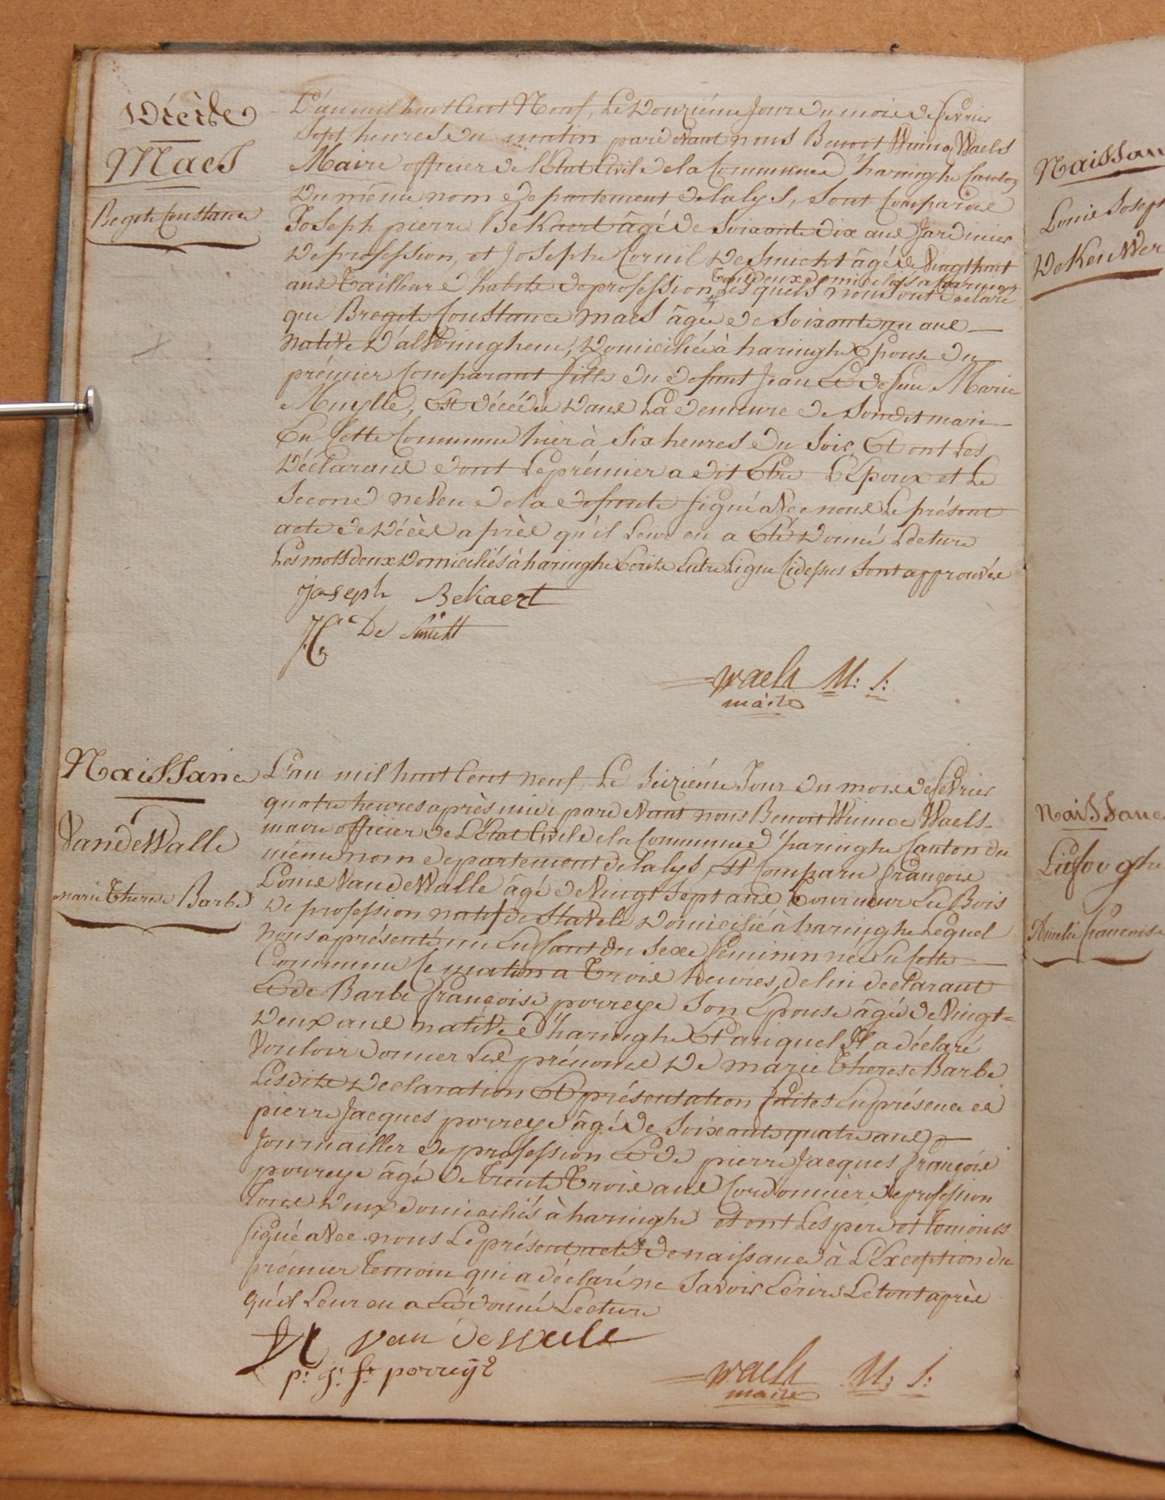 Décède
Maes
Begote Constance
L'an mil huit Cent Neuf, Le Douziéme Jour du mois de fevrier
Sept heures du matin pardevant nous Benoit Winnoc Waels
Maire officier de l'Etat Civil de la Commune d'haringhe Canton
Du même nom departement de la lys, Sont Comparus
Joseph pierre BeKaert âgé de Soixante dix ans Jardinier
De profession, et Joseph Corneil Desmicht âgé de Vingt huit
tous deux domiciliés a haringhe
ans Tailleur d'habits de profession, Les quels nous ont déclaré
que Begote Constance Maes âgée de Soixante un ans
Native D'alveringhem, Domiciliée à haringhe Epouse du
prémier Comparant fille du defunt Jean Et de feue Marie
Muylle, Est décédée Dans La demeure de Son dit mari
En Cette Commune hier à Six heures du Soir, Et ont Les
Déclarans dont Le prémier a dit Etre L'Epoux et Le
Second neveu de la defunte signé avec nous Le présent
acte de Décès après qu'il Leur en a Eté Donné Lecture
Les mots deux Domiciliés à haringhe Ecrits Entre Ligne Cidessus Sont approuvés
Joseph BeKaert
De Smicht
Waels M: S:
maire
Naissance
VandeWalle
marie Therese Barbe
L'an mil huit Cent neuf Le Seiziéme Jour du mois de fevrier
quatre heures après midi pardevant nous Benoit Winnoc Waels
maire officier de L'Etat Civil de la Commune d'haringhe Canton du
même nom departement de la lys, Est Comparu françois
Louis VandeWalle âgé de Vingt Sept ans Tourneur En Bois
De profession natif de Stavele Domicilié à haringhe Lequel
Nous a présenté un Enfant du Sexe féminin née En Cette
Commune Ce matin a Trois heures, de lui declarant
Et de Barbe françoise porreye Son Epouse âgée de Vingt-
Deux ans native d'haringhe Et auquel Il a déclaré
Vouloir donner Les prénoms De marie Therese Barbe
Lesdites Declaration Et présentation faites En présence de
pierre Jacques porreye âgé de Soixante quatre ans
Journaillier de profession Et de pierre Jacques françois
porreye âgé de Trente Trois ans Cordonnier de profession
Tous Deux domiciliés à haringhe et ont Les pere et Temoins
signé avec nous Le présent acte de naissance à L'Exception du
premier Temoin qui a déclaré ne Savoir Ecrire Le tout après
qu'il Leur en a Eté Donné Lecture
van de walle
p: j: f: porreye
Waels M: S:
maire
Naissan
Louis Josep
DeKeuWer
Naissance
Liefooghe
Amelie francoise